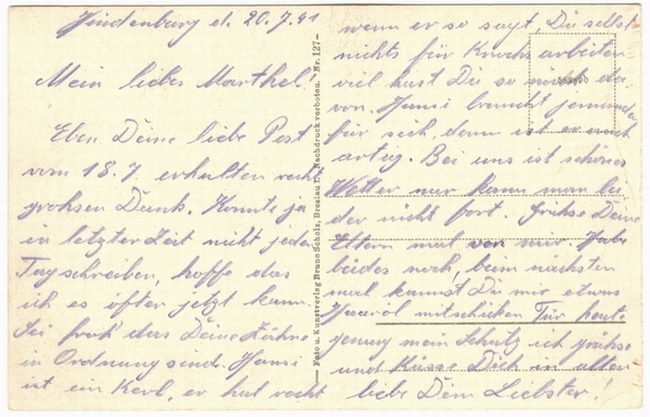 Hindenburg d. 20.7.41
Mein liebes Marthel!
Eben Deine liebe Post
vom 18.7. erhalten recht
grohsen Dank. Konnte ja
in letzter Zeit nicht jeden
Tag schreiben, hoffe das
ich es öfter jetzt kann.
Sei froh das Deine Zähne
in Ordnung sind. Hansi
ist ein Kerl, er hat recht
Foto u. Kunstverlag Bruno Scholz, Breslau Nachdruck verboten. Nr. 127
wenn er so sagt, Du selbst
nichts für Knochs arbeiten
viel hast Du so da-
von. Hansi braucht jemanden
für sich, dann ist er auch
artig. Bei uns ist schönes
Wetter nur kann man lei
der nicht fort. Grühse Deine
Eltern mal von mir. Habe
beides noch, beim nächsten
mal kannst Du mir etwas
Haaröl mitschicken Für heute
genug mein Schatz ich grühse
und Küsse Dich in alter
liebe Dein Liebster!